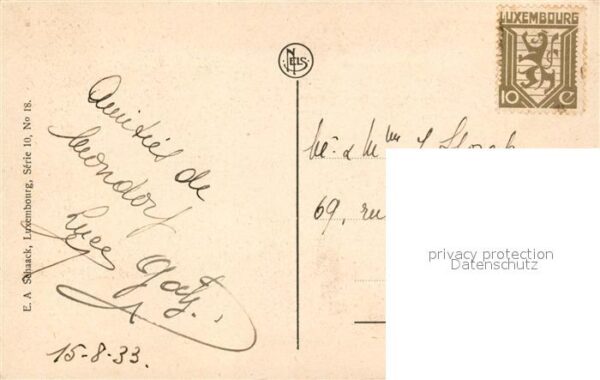 LUXEMBOURG
10 c
NELS
E. A. Schaack, Luxembourg, Série 10, No 18.
Amitiés de
Mondorf
Lucy Gatz.
15-8-33.
Mr & Mme
69, ru
privacy protection
Datenschutz